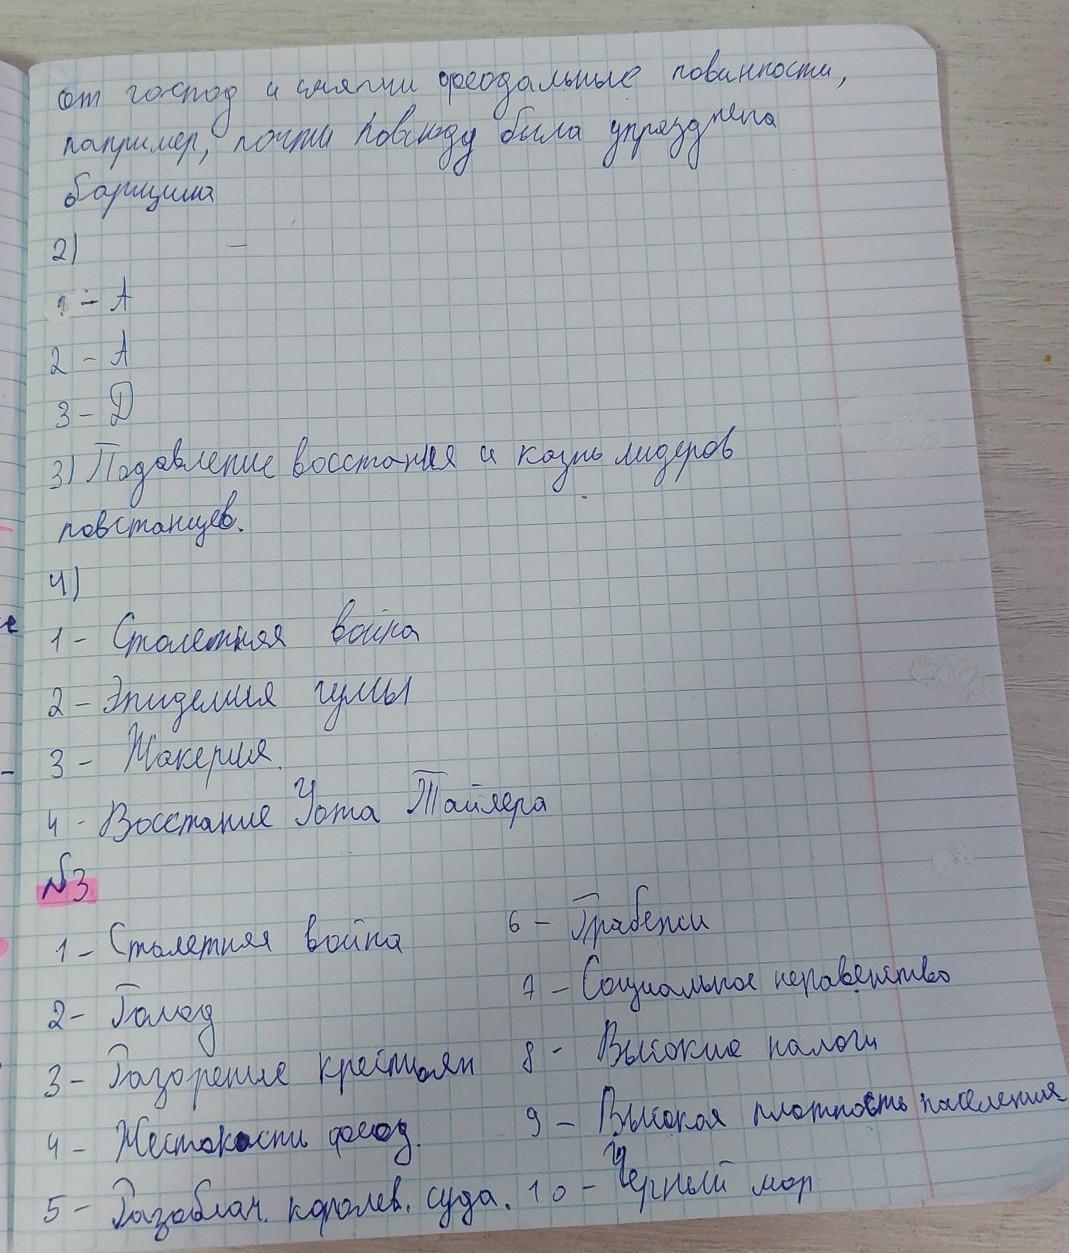 от господ и смягчи феодальные повинности,
например, почти повсюду была упразднена
барщина
2)
1 - А
2 - А
3 - Д
3) Подавление восстания и казнь лидеров
повстанцев.
4)
1 - Столетняя война
2 - Эпидемия чумы
3 - Жакерия.
4 - Восстание Уота Тайлера
№3
1 - Столетняя война
2 - Голод
3 - Разорение крестьян
4 - Жестокости феод.
5 - Разоблач. королев. суда.
6 - Грабежи
7 - Социальное неравенство
8 - Высокие налоги
9 - Высокая плотность населения
10 - Черный мор